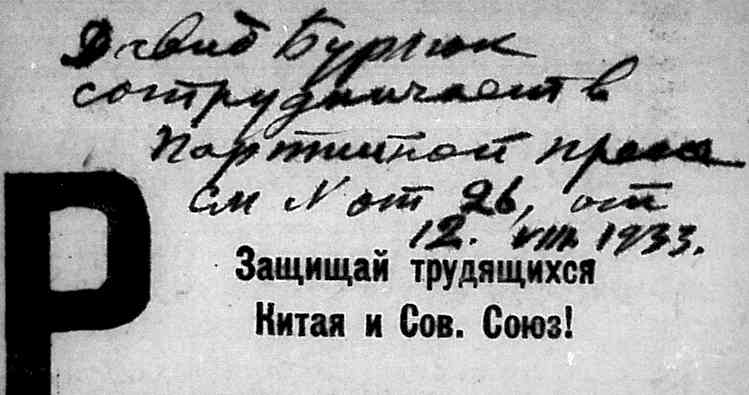 Давид Бурлюк
сотрудничает в
партийной прессе
см N от 26, от
12. VIII. 1933.
Р
Защищай трудящихся
Китая и Сов. Союз!